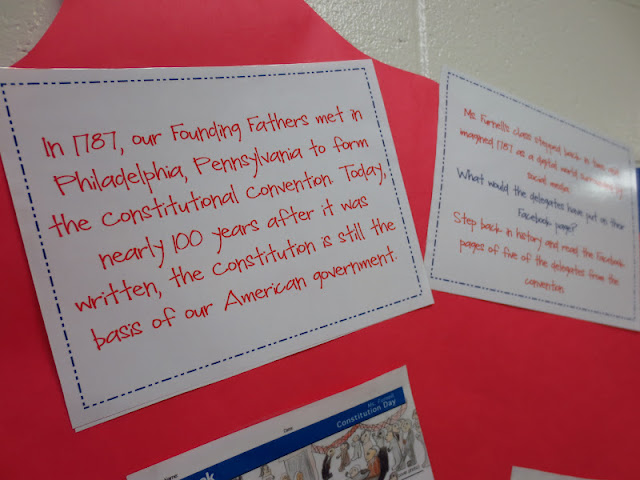 In 1787, our Founding Fathers met in
Philadelphia, Pennsylvania to form
the Constitutional Convention. Today,
nearly 100 years after it was
written, the Constitution is still the
basis of our American government.
class stepped back in time and
imagined 1787 as a digital world
social media.
What would the delegates have put on their
Facebook page?
Step back in history and read the Facebook
pages of five of the delegates from the
convention.
Constitution Day